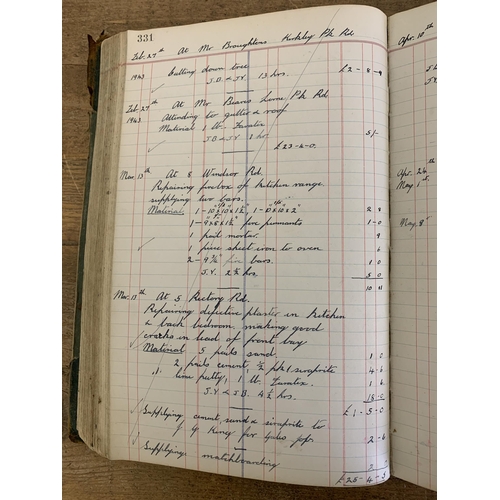 331
Feb. 27th At Mr Broughtons Kirkley Pk Rd.
1943 Cutting down tree
J.B & J.Y. 13 hrs. £2-8-9
Feb. 27th At Mr Beans Lime Pk Rd
1943. Attending to gutter & roof
Material 1 lb.
J.B & J.Y. 2 hrs. 5/-
£23-4-0.
Mar. 13th At 8 Windsor Rd.
Repairing firebox of kitchen range.
supplying two bars.
Material. 1-10"x10"x1½", 1- 2 8
fire 1-0
1 pail mortar. 9
1 piece sheet iron to oven 6
2 - 9¾" fire bars. 1 0
J.Y. 2½ hrs. 5 0
10 11
Mar. 13th At 5 Rectory Rd.
Repairing defective plaster in kitchen
& back bedroom, making good
cracks in lead of front bay
Material 5 pails sand. 1 0
2 pails cement, ½ pk sirapite 4-6
lime putty, 1 lb. 1 6
J.Y & J.B. 4½ hrs. 18 0
£1-5-0
Supplying cement, sand & sirapite to
King for job. 2-6
Supplying matchboarding
£25-4-5
Apr. 10th
Apr. 26
May 1st
May 8th